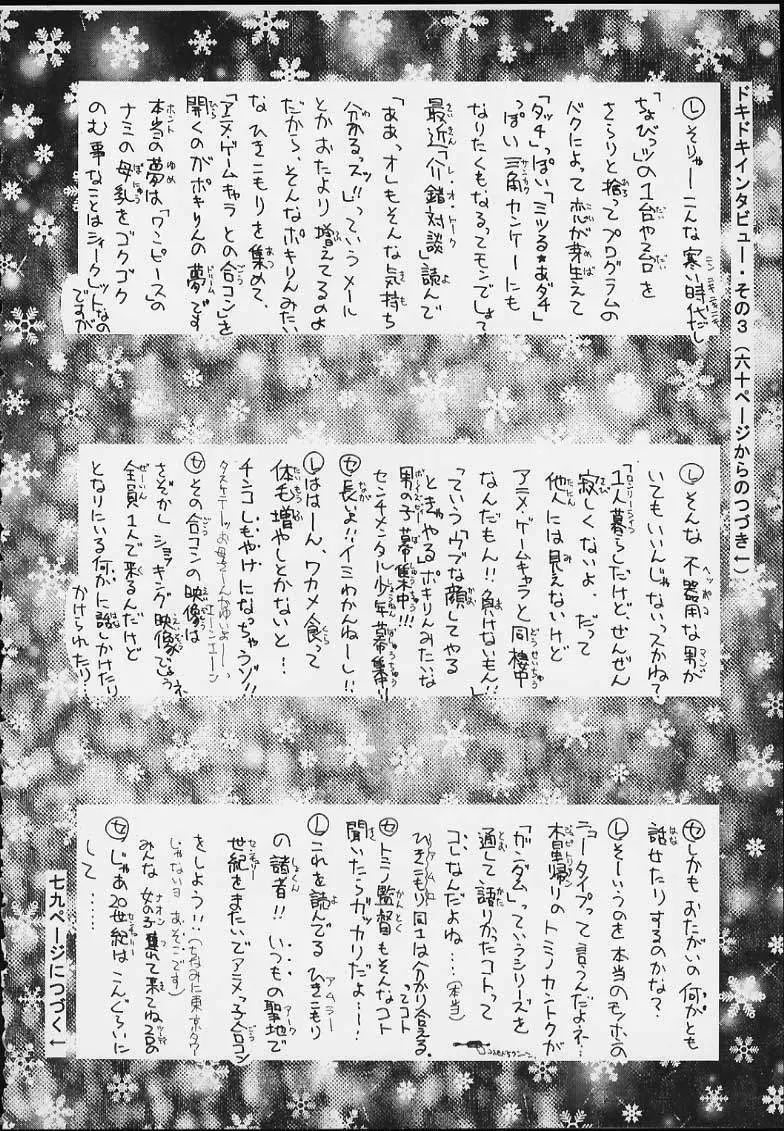 ドキドキインタビュー・その3（六十ページからのつづき↓）
Ⓛそりゃーこんな寒い時代だし
「ちょびっツ」の1台や2台を
さらりと捨ってプログラムの
バクによって恋が芽生えて
「タッチ」っぽい「ミツる★あダチ」
っぽい三角カンケーにも
なりたくもなるってモンでしょて
最近「介錯対談」読んで
「ああっオレもそんな気持ち
分かるっス!!」っていうメール
とかおたより増えてるのよ
だから、そんなポキりんみたい
なひきこもりを集めて、
「アニメ・ゲームキャラとの合コン」を
開くのがポキりんの夢です
本当の夢は「ワンピース」の
ナミの母乳をゴクゴク
のむ事なことはシークレットなの
ですが
Ⓛそんな不器用な男が
いてもいいんじゃないってかね？
「1人暮らしだけど、ぜんぜん
寂しくないよ。だって
他人には見えないけど
アニメ・ゲームキャラと同棲中
なんだもん!!負けないもん!!」
っていうウブな顔してやる
ときゃやるポキりんみたいな
男の子募集中!!!
センチメンタル少年募集中!!
Ⓢ長いよ!!イミわかんねーし!!
Ⓛははーん、ワカメ食って
体毛増やしとかないと…
チンコしもやけになっちゃうゾ!!
タスケテーッお母さーんかゆいよーエーンエーン
Ⓢその合コンの映像は
さぞかしショッキング映像でしょうネ
全員1人で来るんだけど
となりにいる何かに話しかけたり…
かけられたり…
Ⓢしかもおたがいの何かとも
話せたりするのかな？
Ⓛそーいうのを本当のモノホンの
ニュータイプって言うんだよネ…
木星帰りのトミノカントクが
「ガンダム」っていうシリーズを
通して語りたかったコトって
コレなんだよね…（本当）
ひきこもり同士は分かり合える。
ってコト
Ⓢトミノ監督もそんなコト
聞いたらガッカリだよ…
Ⓛこれを読んでるひきこもり
の諸君!!いつもの聖地で
世紀をまたいでアニメっ子合コン
をしよう!!（ちなみに東京タワー
じゃないヨあそこです）
みんな女の子連れて来てね
Ⓢじゃあ20世紀はこんぐらいに
して……
七九ページにつづく↓